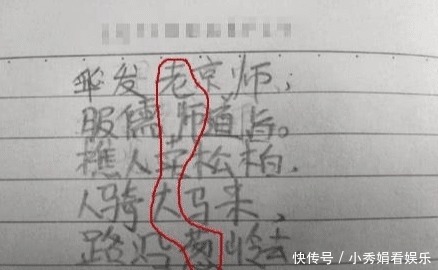 发老京师，
服儒师道旨。
樵人卖松柏，
人骑大马来，
路冯葱岭去
快传号／小秀娟看娱乐